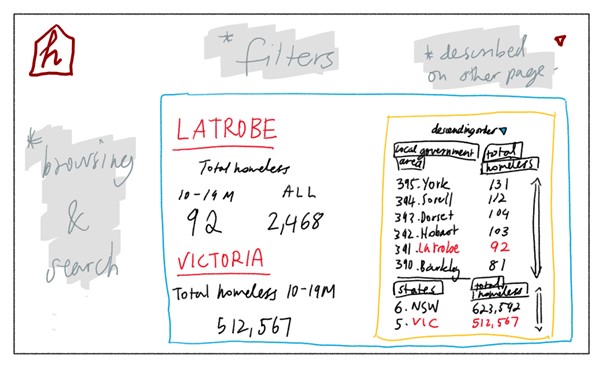 h
* filters
* described
on other page.
* browsing
&
search
LATROBE
Total homeless
10-19 M ALL
92 2,468
VICTORIA
Total homeless 10-19M
512,567
descending order
Local government area total homeless
395. York 131
394. Sorell 112
393. Dorset 104
392. Hobart 103
391. Latrobe 92
390. Barkley 81
states total homeless
6. NSW 623,592
5. VIC 512,567